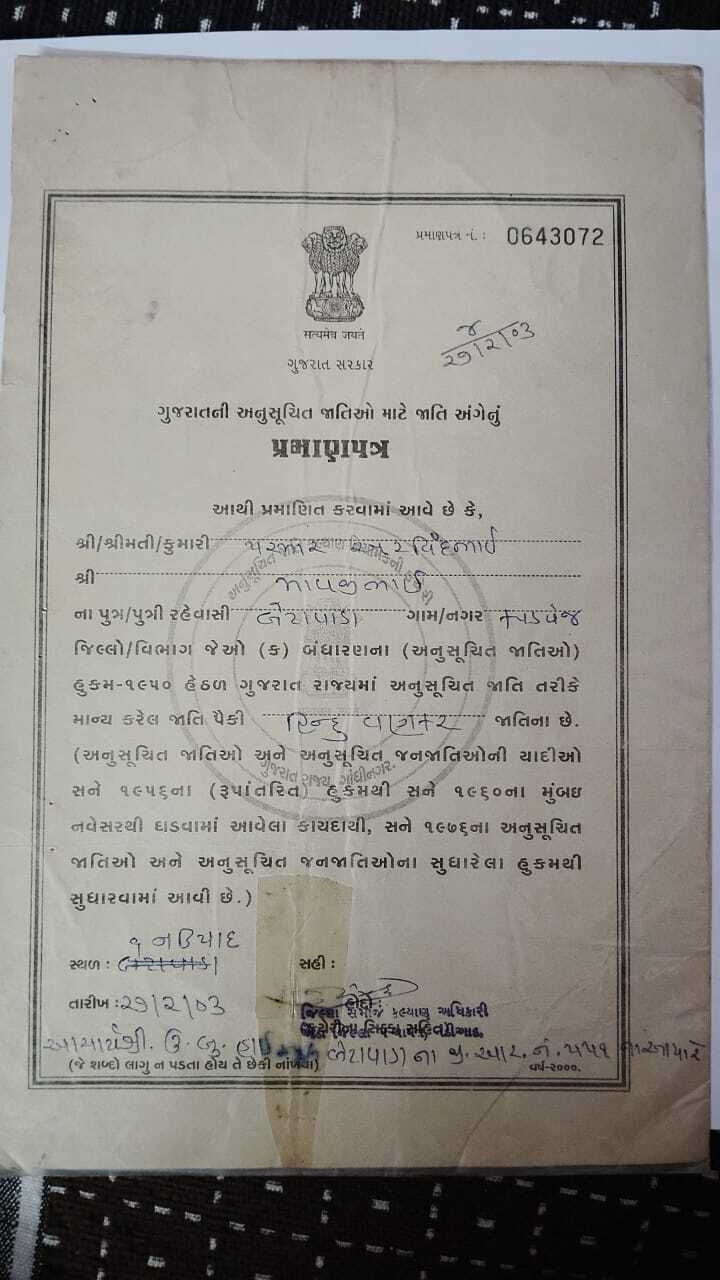 પ્રમાણપત્ર નં. : 0643072
सत्यमेव जयते
ગુજરાત સરકાર
૨૭/૨/૦૩
ગુજરાતની અનુસૂચિત જાતિઓ માટે જાતિ અંગેનું
પ્રમાણપત્ર
આથી પ્રમાણિત કરવામાં આવે છે કે,
શ્રી/શ્રીમતી/કુમારી પરમાર
શ્રી
ના પુત્ર/પુત્રી રહેવાસી બેટાવાડા ગામ/નગર કપડવંજ
જિલ્લો/વિભાગ જેઓ (ક) બંધારણના (અનુસૂચિત જાતિઓ)
હુકમ-૧૯૫૦ હેઠળ ગુજરાત રાજ્યમાં અનુસૂચિત જાતિ તરીકે
માન્ય કરેલ જાતિ પૈકી હિન્દુ વણકર જાતિના છે.
(અનુસૂચિત જાતિઓ અને અનુસૂચિત જનજાતિઓની યાદીઓ
સને ૧૯૫૬ના (રૂપાંતરિત) હુકમથી સને ૧૯૬૦ના મુંબઇ
નવેસરથી ઘડવામાં આવેલા કાયદાથી, સને ૧૯૭૬ના અનુસૂચિત
જાતિઓ અને અનુસૂચિત જનજાતિઓના સુધારેલા હુકમથી
સુધારવામાં આવી છે.)
નડિયાદ
સ્થળ :
સહી :
તારીખ : ૨૭/૨/૦૩
હોદ્દો :
જિલ્લા સમાજ કલ્યાણ અધિકારી
કચેરીના સિક્કા સહિત
આચાર્યશ્રી. ઉ. બુ. બેટાવાડા ના જી. આર. નં. ૫૫૧ ના આધારે
(જે શબ્દો લાગુ ન પડતા હોય તે છેકી નાંખવા)
વર્ષ-૨૦૦૦.